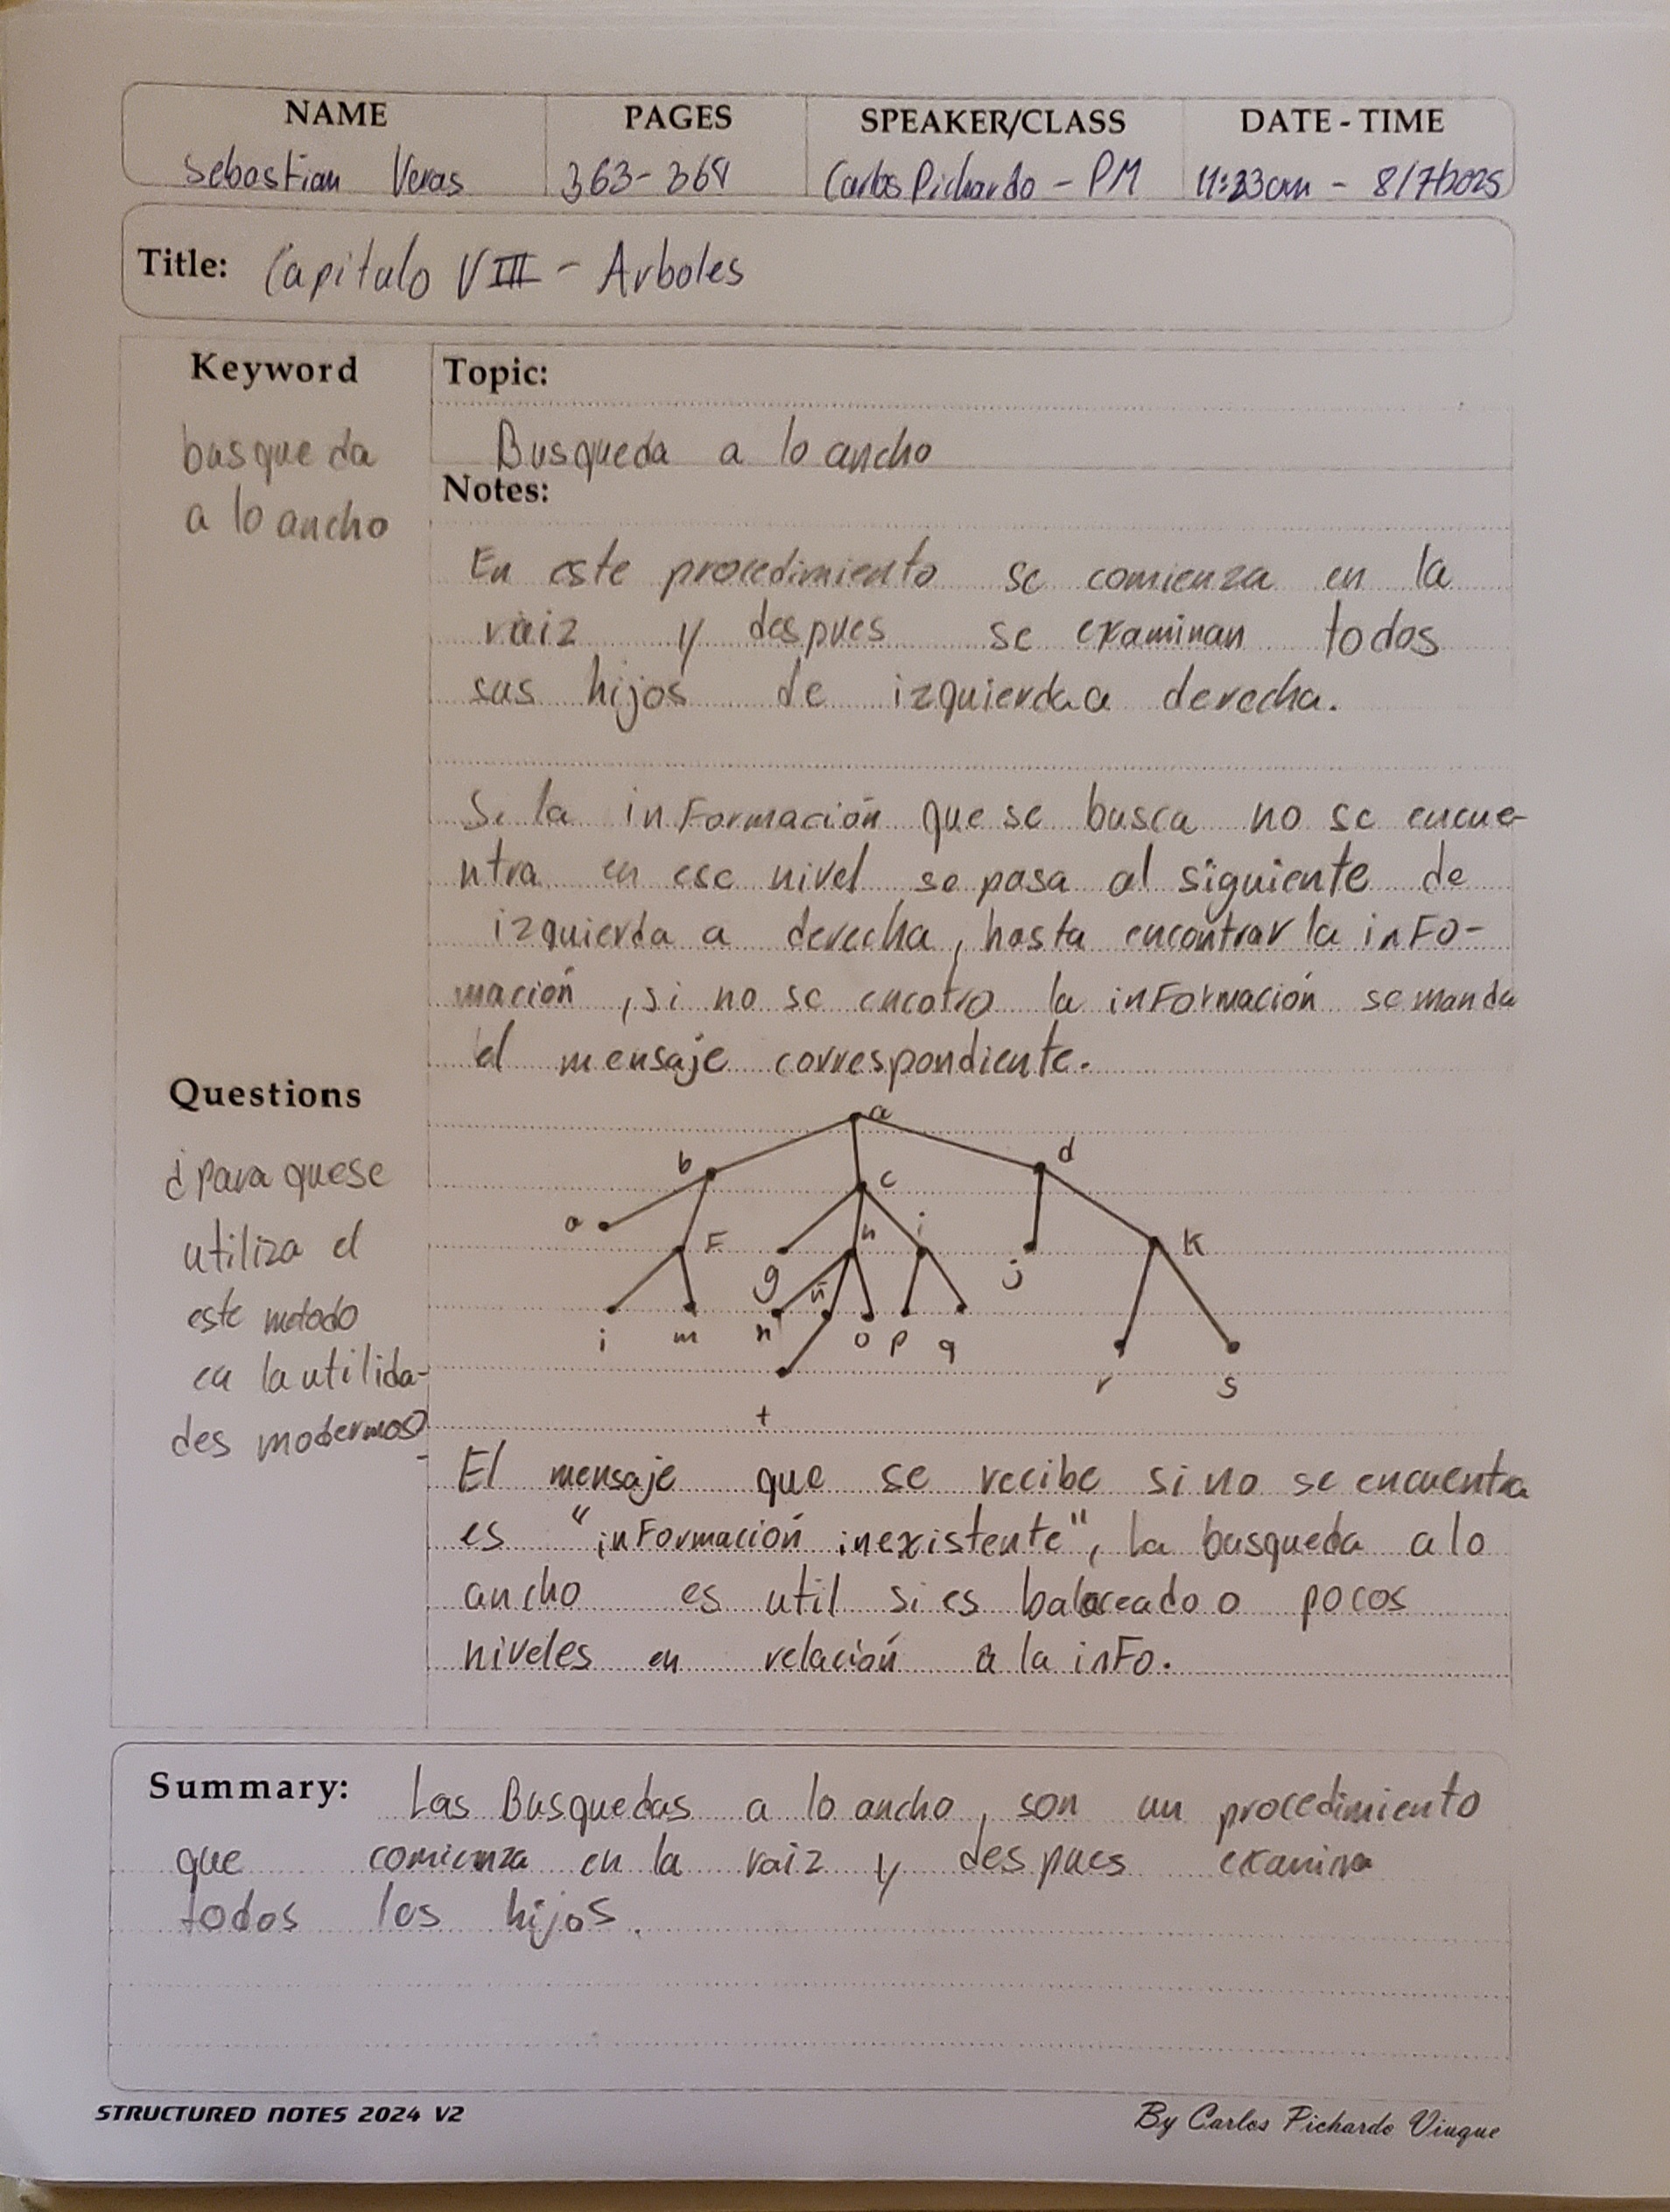 NAME PAGES SPEAKER/CLASS DATE - TIME
Sebastian Veras 363-368 Carlos Pichardo - PM 11:23am - 8/7/2025
Title: Capitulo VIII - Arboles
Keyword
busqueda
a lo ancho
Topic:
Busqueda a lo ancho
Notes:
En este procedimiento se comienza en la
raiz y despues se examinan todos
sus hijos de izquierda a derecha.
Si la información que se busca no se encue-
ntra en ese nivel se pasa al siguiente de
izquierda a derecha, hasta encontrar la info-
mación, si no se encotro la información se manda
el mensaje correspondiente.
Questions
¿Para que se
utiliza el
este metodo
en la utilida-
des modermos?
a
b d
c
e F h i
g ñ j K
i m n o p q
r s
t
El mensaje que se recibe si no se encuentra
es "información inexistente", la busqueda a lo
ancho es util si es balaceado o pocos
niveles en relación a la info.
Summary: Las Busquedas a lo ancho, son un procedimiento
que comienza en la raiz y despues examina
todos los hijos.
STRUCTURED NOTES 2024 V2
By Carlos Pichardo Viuque